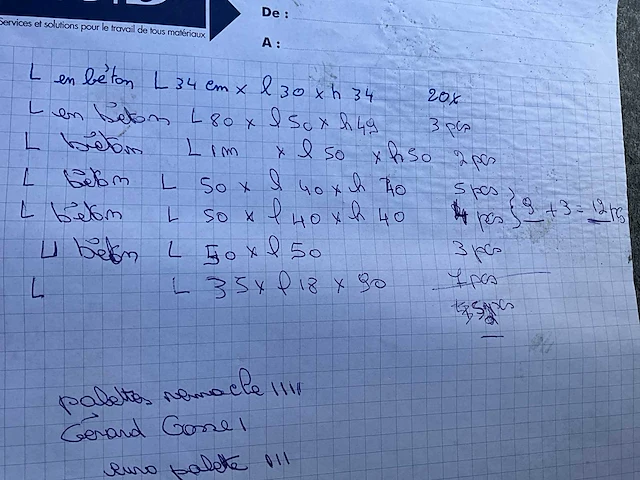 Services et solutions pour le travail de tous matériaux
De :
A :
L en béton L 34 cm x l 30 x h 34 20x
L en béton L 80 x l 50 x h 49 3 pcs
L béton L 1m x l 50 x h 50 2 pcs
L béton L 50 x l 40 x h 40 5 pcs
L béton L 50 x l 40 x h 40 4 pcs } 9 + 3 = 12 pcs
U béton L 50 x l 50 3 pcs
L L 35 x l 18 x 90 7 pcs
palettes IIII
Gérard I
euro palette III